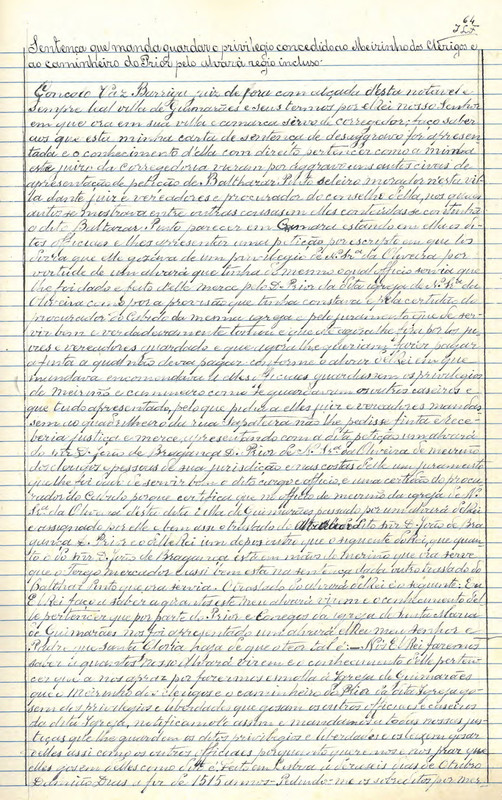 64
Sentença que manda guardar o privilegio concedido ao Meirinho dos Clerigos e
ao caminheiro do Prior pelo alvará regio incluso.
Gonçalo Vaz juiz de fora com alçada n'esta notavel e
sempre leal villa de Guimarães e seus termos por el Rei nosso Senhor
em que ora em sua villa e comarca sirvo de corregedor; faço saber
aos que esta minha carta de sentença de desaggravo for apresen-
tada e o conhecimento d'ella com direito pertencer como a minha
este juizo da Corregedoria vieram por aggravo uns autos civeis de
apresentação de petição de Balthazar Pinto seleiro morador n'esta vil-
la dante juiz e vereadores e procurador do concelho d'ella, nos quaes
autos se mostrava entre outras cousas em elles conteudas se continha
o dito Baltazar Pinto parecer em Camara estando em ella os di-
tos officiaes e elles apresentar uma petição por escripto em que lhe
dizia que elle gozava de um privilegio de N. Srª da Oliveira por
virtude de um alvará que tinha o mesmo o qual officio servia que
lhe foi dado e feito d'elle mercê pelo D. Prior da dita egreja de N. Srª da
Oliveira como por a provisão que tinha constava e pela certidão do
procurador do Cabido da mesma egreja e pelo juramento que de ser-
vir bem e verdadeiramente tinha e que
e vereadores guardado e que agora lhe queriam fazer pagar
a finta a qual não devia pagar conforme o alvará d'El Rei em que
mandava encommendava elles officiaes guardassem os privilegios
de Meirinho e caminheiro como se guardavam os outros caseiros e
que tudo apresentado, pelo que pedia a elles juiz e vereadores mandas-
sem ao quadrilheiro da rua Sapateira não lhe pedisse finta e rece-
beria justiça e mercê, apresentando com a dita petição um alvará
do snr D. João de Bragança D. Prior de N. Srª da Oliveira de meirinho
dos clerigos e pessoas de sua jurisdição e nas costas d'elle um juramento
que lhe foi dado de servir bem o dito cargo e officio, e uma certidão do procu-
rador do Cabido porque certifica que no officio de meirinho da egreja de N.
Srª da Oliveira d'esta dita villa de Guimarães passado por um alvará d'el Rei
e assignado por elle e bem assim o traslado do Alvará do dito snr D. João de Bra-
gança D. Prior e do d'el Rei em
to o do snr D. João de Bragança está em
e assi bem está na sentença dada outro treslado do
Balthazar Pinto que ora servia. O treslado do alvará d'El Rei é o seguinte: Eu
El Rei faço saber a quantos este meu alvará virem e o conhecimento d'el-
le pertencer que por parte do Prior e Conegos da egreja de Santa Maria
de Guimarães nos foi apresentado um alvará d'El Rei meu senhor e
Padre que santa gloria haja de que o teor tal é:— Nós El Rei fazemos
saber a quantos nosso Alvará virem e o conhecimento d'elle perten-
cer que a nós apraz por fazermos esmolla á Egreja de Guimarães
que o Meirinho dos clerigos e o caminheiro do Prior da dita Egreja go-
sem dos privilegios e liberdades que gosam os outros officiaes e caseiros
da dita Egreja, notificamol-o assim e mandamos a todas nossas jus-
tiças que lhe guardem os ditos privilegios e liberdades e os deixem gosar
d'elles assi como os outros officiaes porquanto queremos e nos praz que
elles gosem d'elles como dito é. Feito em Lisboa a dezaseis dias de Outubro
 o fez de 1515 annos. Pedindo-me os sobreditos por mer-